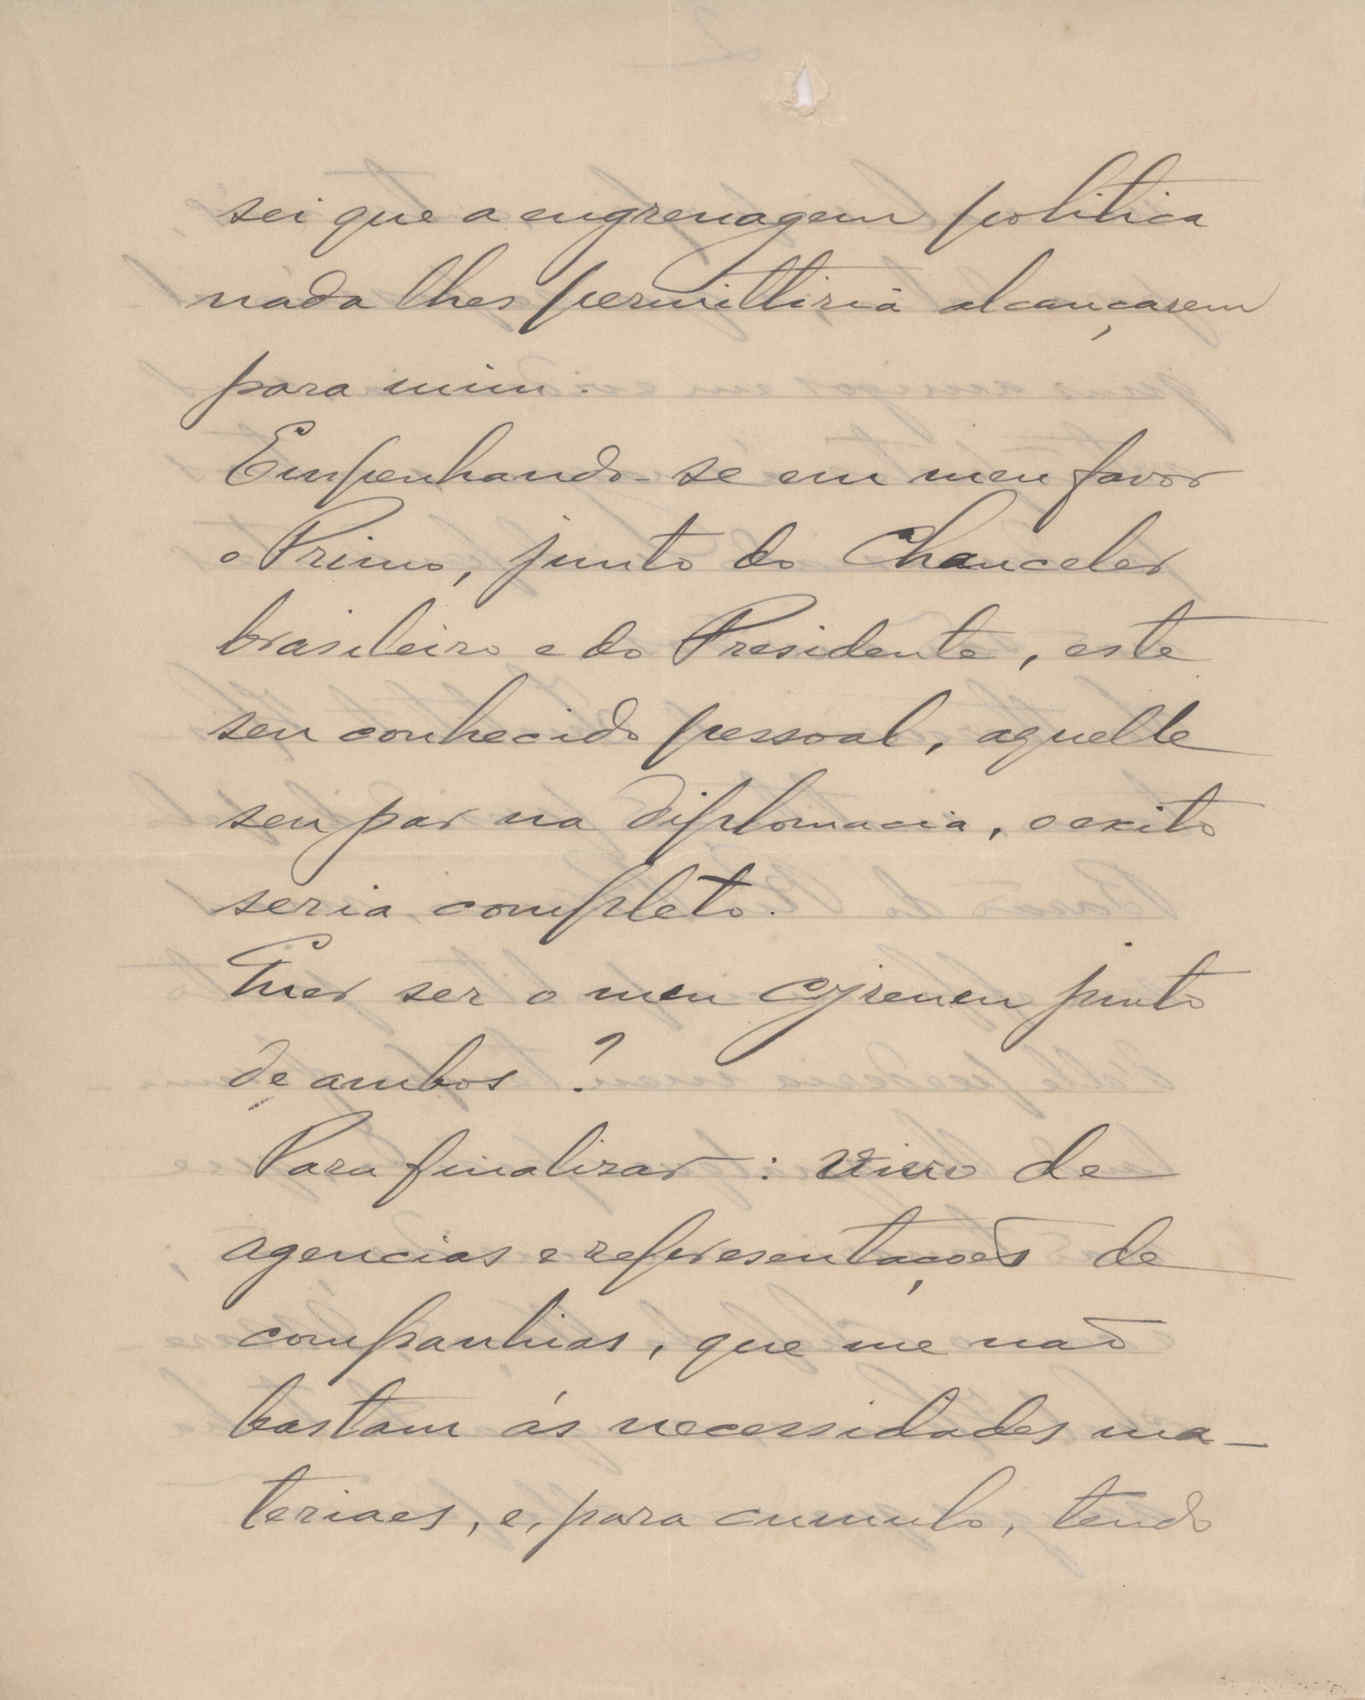 sei que a engrenagem politica
nada lhes permittiria alcançarem
para mim.
Empenhando-se em meu favor
o Primo, junto do Chanceler
brasileiro e do Presidente, este
seu conhecido pessoal, aquelle
seu par na diplomacia, o exito
seria completo.
Quer ser o meu Cyreneu junto
de ambos?
Para finalizar: vivo de
agencias e representações de
companhias, que me não
bastam ás necessidades ma-
teriaes, e, para cumulo, tendo